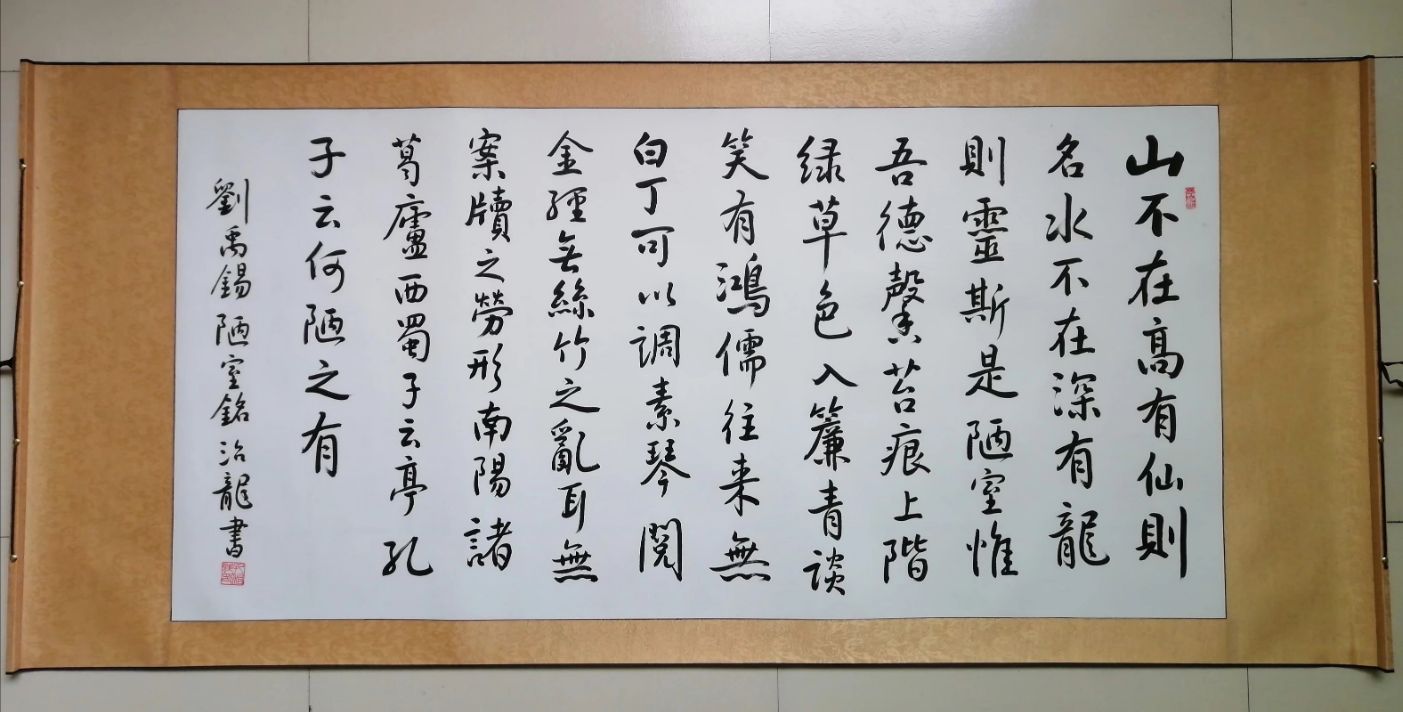 山不在高有仙則
名水不在深有龍
則靈斯是陋室惟
吾德馨苔痕上階
緑草色入簾青談
笑有鴻儒往来無
白丁可以調素琴閲
金經无絲竹之亂耳無
案牘之勞形南陽諸
葛廬西蜀子云亭孔
子云何陋之有
劉禹錫陋室銘治龍書